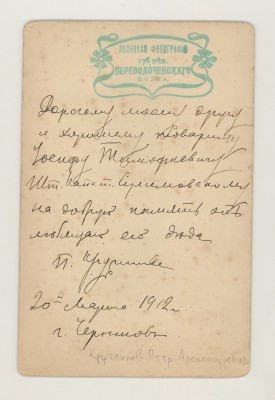 ПОЛКОВАЯ ФОТОГРАФІЯ
176 ПѢХ.
ПЕРЕВОЛОЧЕНСКАГО
ПОЛКА.
Дорогому моему другу
и хорошему товарищу
Іосифу Тимофеевичу
Шт. Капит.
на добрую память отъ
любящаго его
П.
20го Марта 1912 г.
г. Черниговъ
Кругликов Петр Александрович